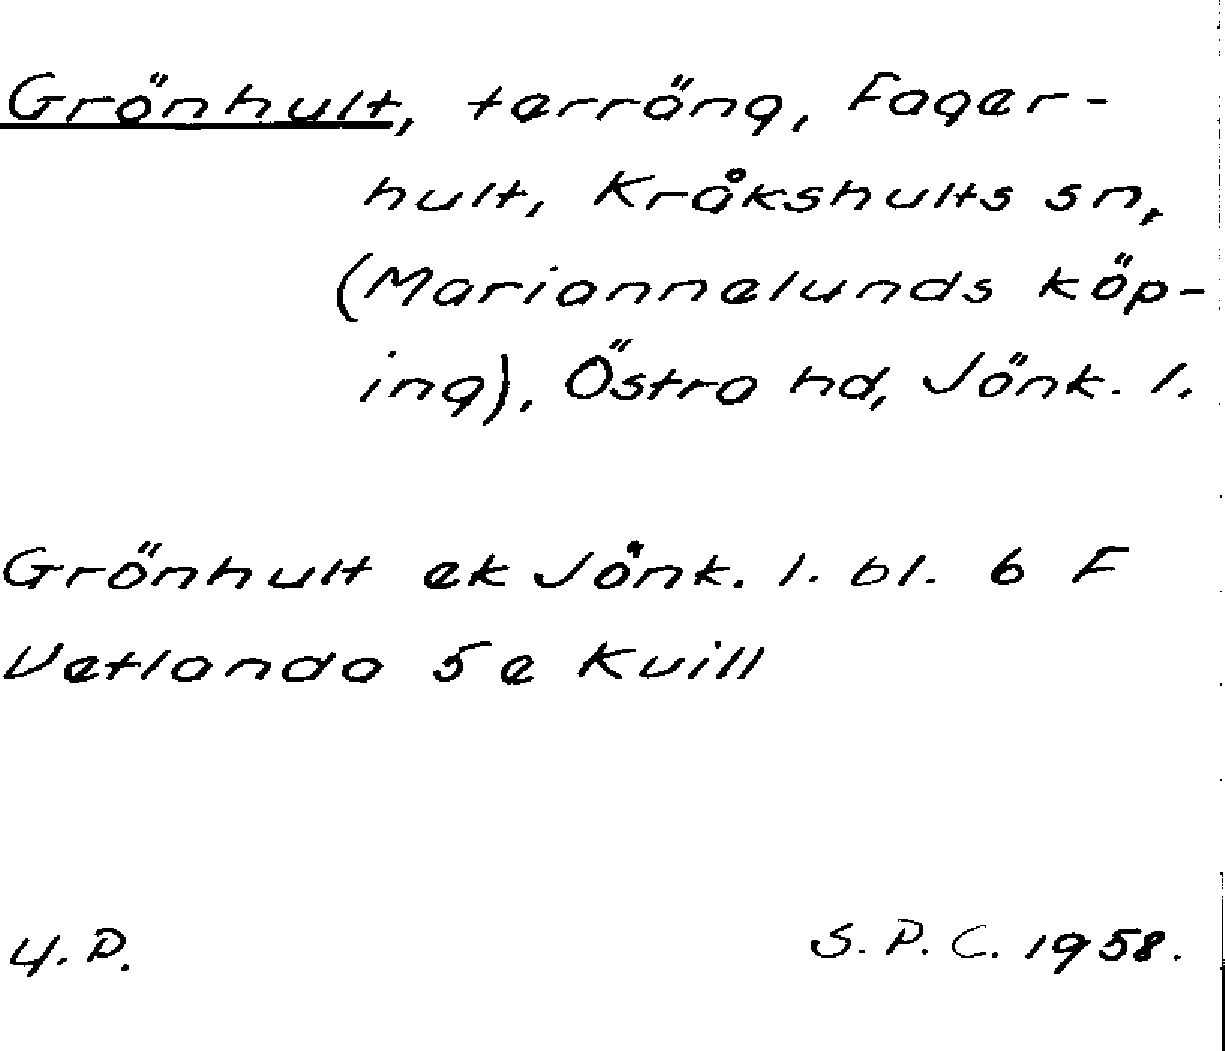 Grönhult, terräng, Fager-
hult, Kråkshults sn,
(Mariannelunds köp-
ing), Östra hd, Jönk. l.
Grönhult ek Jönk. l. bl. 6 F
Vetlanda 5e Kvill
4. D.
S. P. C. 1958.